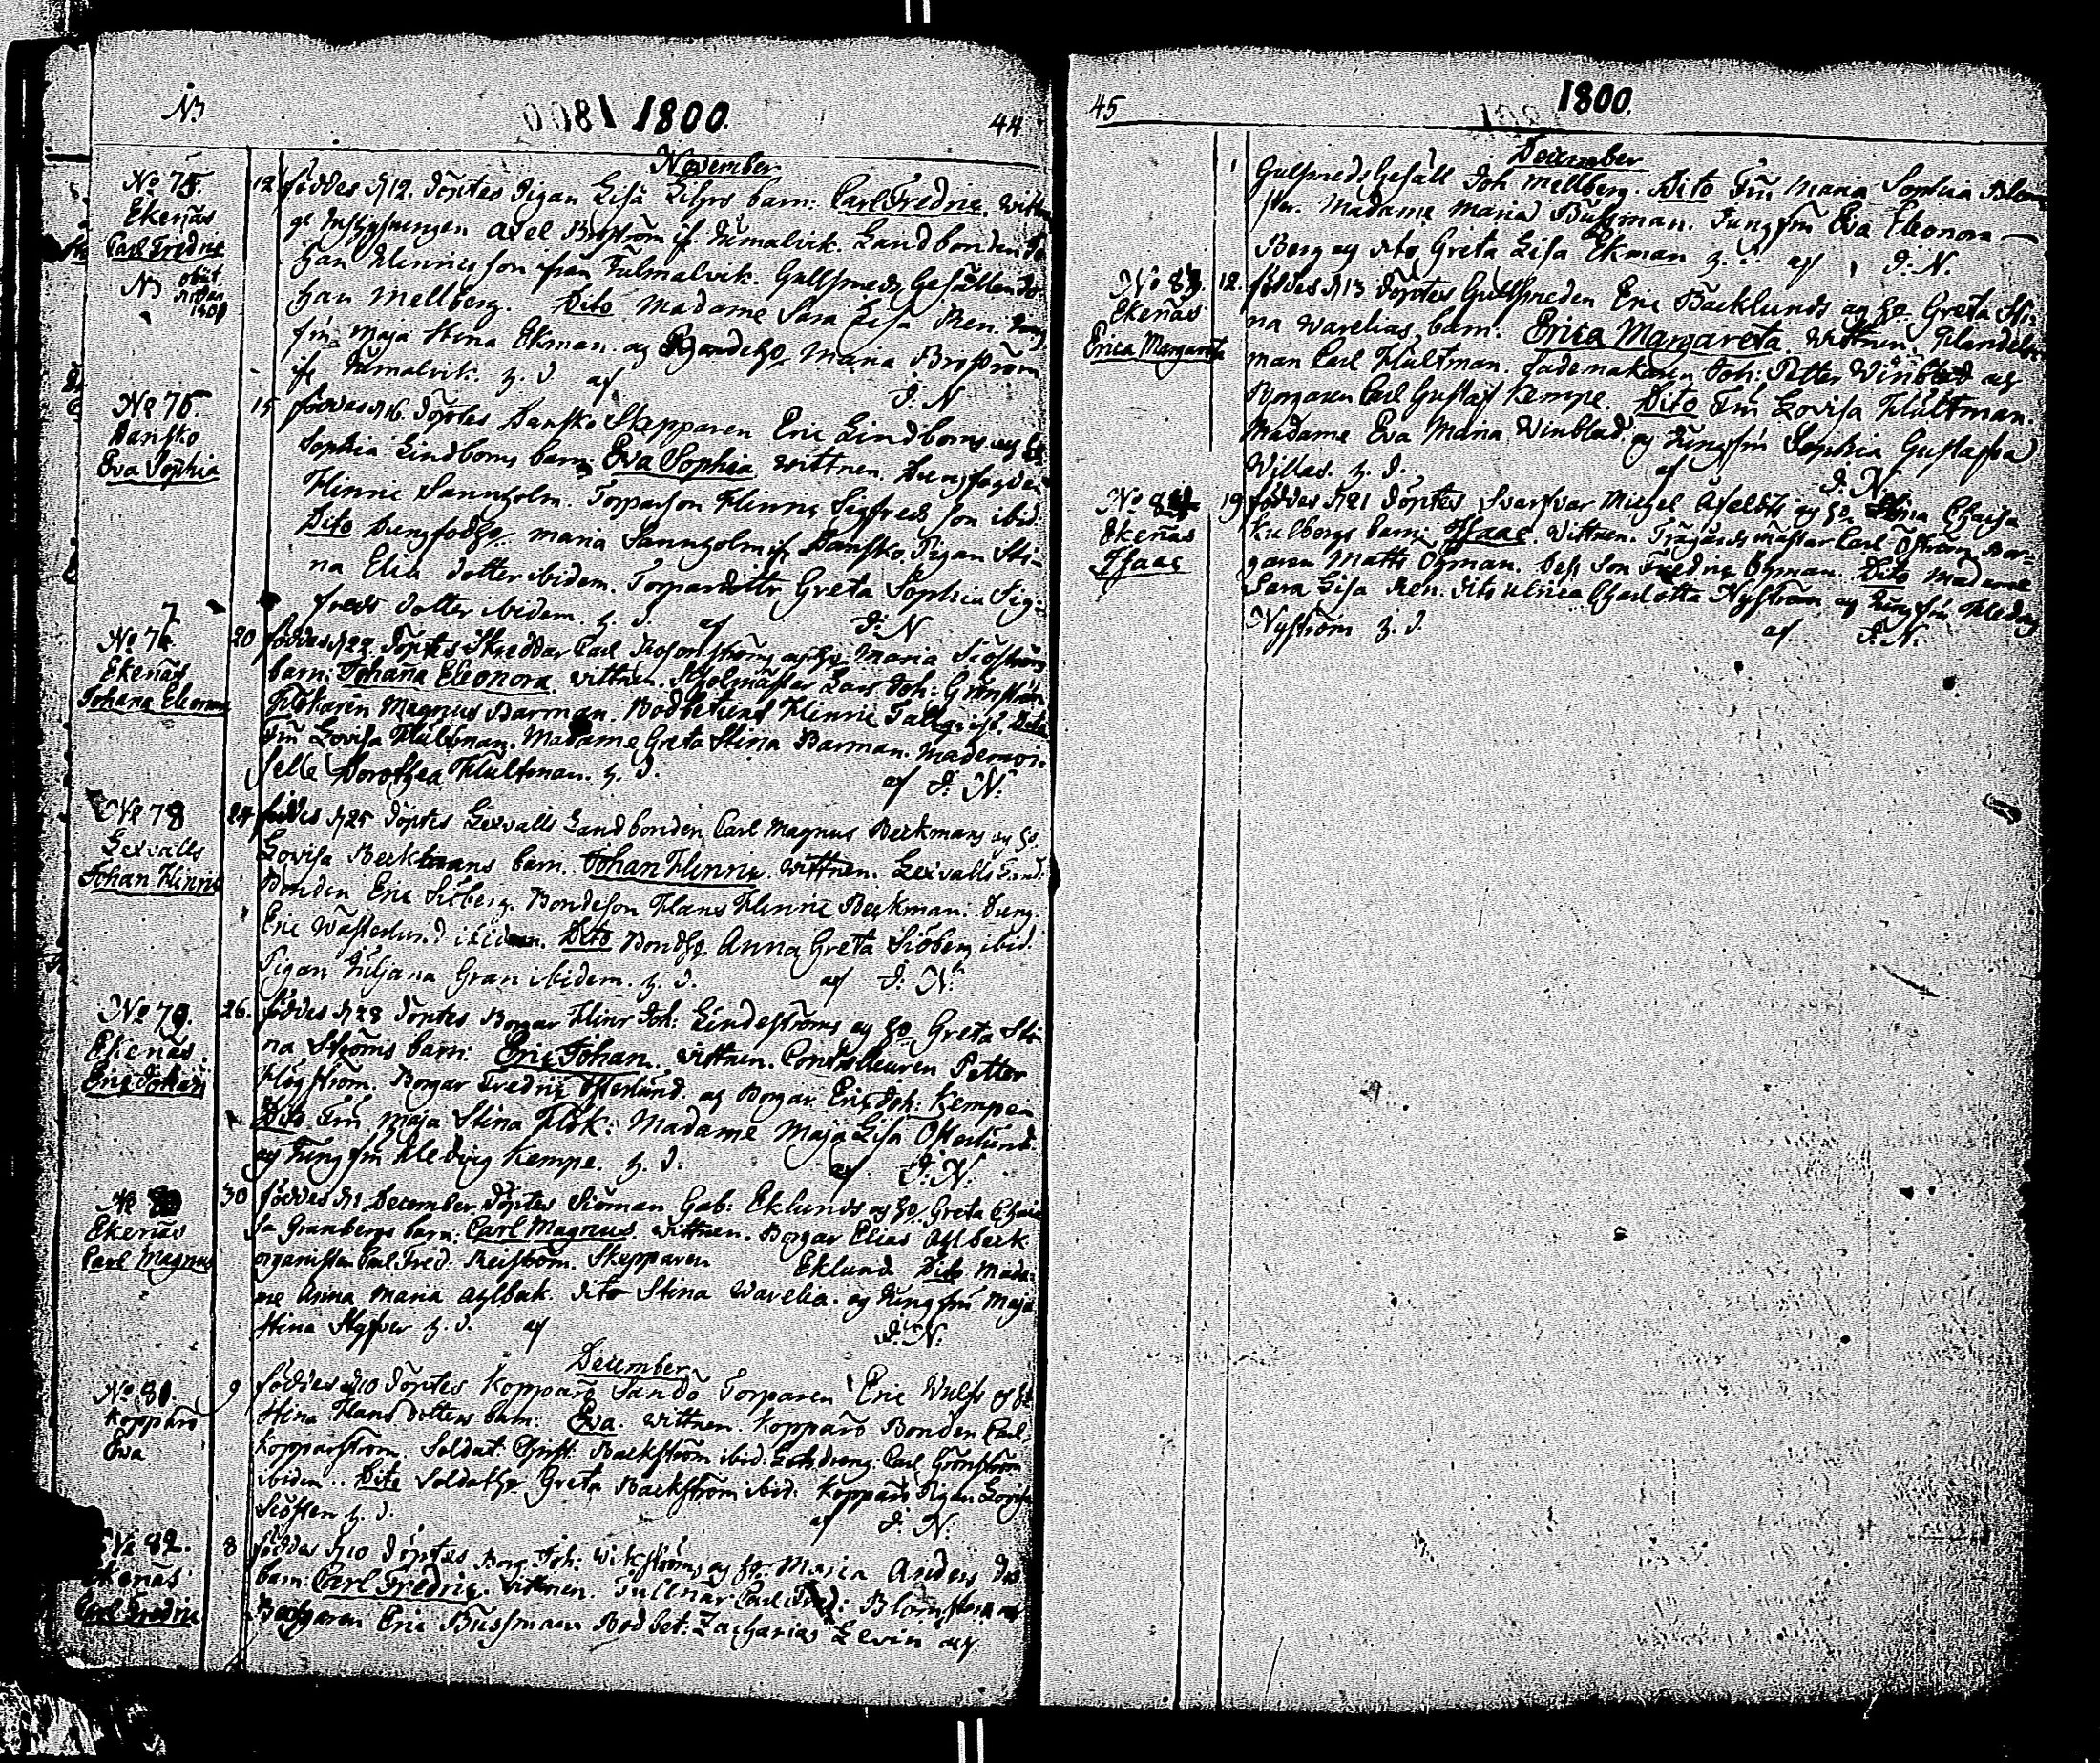 NB
1800.
44
November
No 75.
Ekenäs
Carl Fredric
NB obiit
1801
12 föddes d 12. döptes Pigan Lisa barn: Carl Fredric. Wittn
Axel Broström if. Tumalvik. Landbonden Jo
han Henricsson ifrån Gullsmeds Gesällen Jo
han Mellberg. Dito Madame Sara Lisa Ren. Jung
fru Maja Stina Ekman. og Maria Broström
if. Tumalvik. z. d. af J. N
No 76.
Dansko
Eva Sophia
15 föddes d 16. döptes Dansko Skepparen Eric Lindboms og
Sophia Lindboms barn: Eva Sophia. Wittnen.
Henric Sannholm. Torparson Henric Sigfreds son ibid.
Dito Maria Sannholm if Dansko. Pigan Sti-
na Elia dotter ibidem. Torpardottr Greta Sophia Sig-
freds dotter ibidem. z. d. af J: N
No 77
Ekenäs
Johana Eleonora
20 föddes d 22. döptes Skreddar Carl Rosenströms og ho Maria Siöströms
barn: Johana Eleonora. Wittnen. Skolmästar Lars Joh: Grönström
Magnus Barman. Bodbetient Henric Dito
Fru Lovisa Hultman. Madame Greta Stina Barman. Mademoi-
selle Dorothea Hultman. z. d. af J: N:
No 78
Lexvalls
Johan Henric
24 föddes d 25 döptes Lexvalls Landbonden Carl Magnus Beckmans og ho.
Lovisa Beckmans barn. Johan Henric. Wittnen. Lexvalls Land
Bonden Eric Siöberg. Bondeson Hans Henric Beckman. Dreng.
Eric Wästerlund ibidem. Dito Bondho. Anna Greta Siöberg ibid.
Pigan Juljana Gran ibidem. z. d. af J: N:
No 79.
Ekenäs.
Eric Johan
26. föddes d 28 döptes Borgar Hinr Joh: Lindeströms og ho Greta Sti
na Ströms barn: Eric Johan. Wittnen. Controlleuren Petter
Högström. Borgar Fredric Österlund. og Borgar Eric Joh: Kempe.
Dito Fru Maja Stina Flök: Madame Maja Lisa Österlund.
og Jungfru Hedvig Kempe. z. d. af J: N:
No 80
Ekenäs
Carl Magnus
30 föddes d 1 December döptes Siöman Gab: Eklunds og ho. Greta Chai
sa Granbergs barn: Carl Magnus. Wittnen. Borgar Elias Ahlbeck
organisten Carl Fred: Reiström. Skepparen Eklund Dito Mada-
me Anna Maria Ahlbeck. dito Stina Warelia. og Jungfru Maja
Stina z. d. af J: N:
December
No 81.
Kopparö
Eva
9 föddes d 10 döptes Kopparö Sandö Torparen Eric Wulfs og ho
Stina Hans dotters barn: Eva. Wittnen. Kopparö Bonden Carl
Kopparström. Soldat Christ: Backström ibid: Carl Grönström
ibidem.. Dito Soldatho Greta Backström ibid. Kopparö Pigan Lovisa
z. d. af J. N:
No 82.
Ekenäs
Carl Fredric
8 föddes d 10 döptes Borg. Joh: Wikströms og ho. Maria Anders dr
barn: Carl Fredric. Wittnen. Tullnär Carl Fred: Blomster og
Borgaren Eric Bussman Bodbet: Zacharias Levin og
45
1800.
December
Gulsmeds Gesäll Joh Mellberg. Dito Fru Maria Sophia Blom
ster. Madame Maria Bussman. Jungfru Eva Eleonora
Berg og dito Greta Lisa Ekman z. d. af J: N.
No 83.
Ekenäs
Erica Margareta
12. föddes d 13 döptes Gullsmeden Eric Bäcklunds og ho. Greta Sti-
na Warelias barn: Erica Margareta. Wittnen. Handels-
man Carl Hultman. Joh: Petter Winblad og
Borgaren Carl Gustaf Kempe. Dito Fru Lovisa Hultman.
Madame Eva Maria Winblad og Jungfru Sophia Gustafva
Willas. z. d. af J. N
No 84
Ekenäs
Isaac
19 föddes d 21 döptes Svarfvar Michel Aseldts og ho. Stina Chaisa
Kulbergs barn: Isaac. Wittnen. Trägårds mästar Carl Öström. Bor-
garen Matts Öhman. Dess Son Fredric Öhman. Dito Madame
Sara Lisa Ren. dito Ulrica Charlotta Nyström og Jungfru Hedvig
Nyström z. d. af J: N.